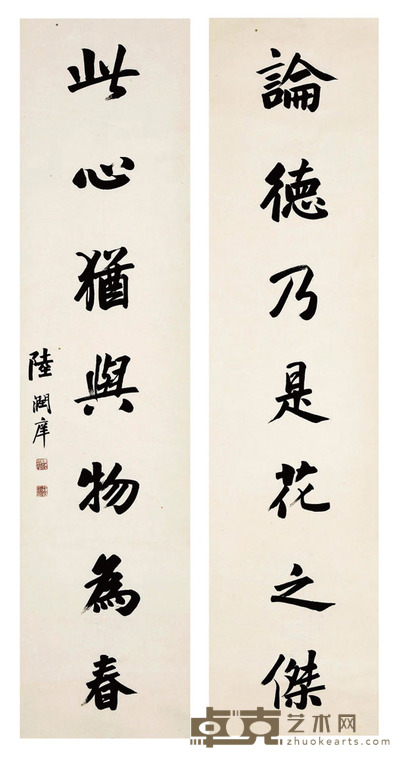 論德乃是花之傑
此心猶與物為春
陸潤庠
卓克艺术网
zhuokearts.com